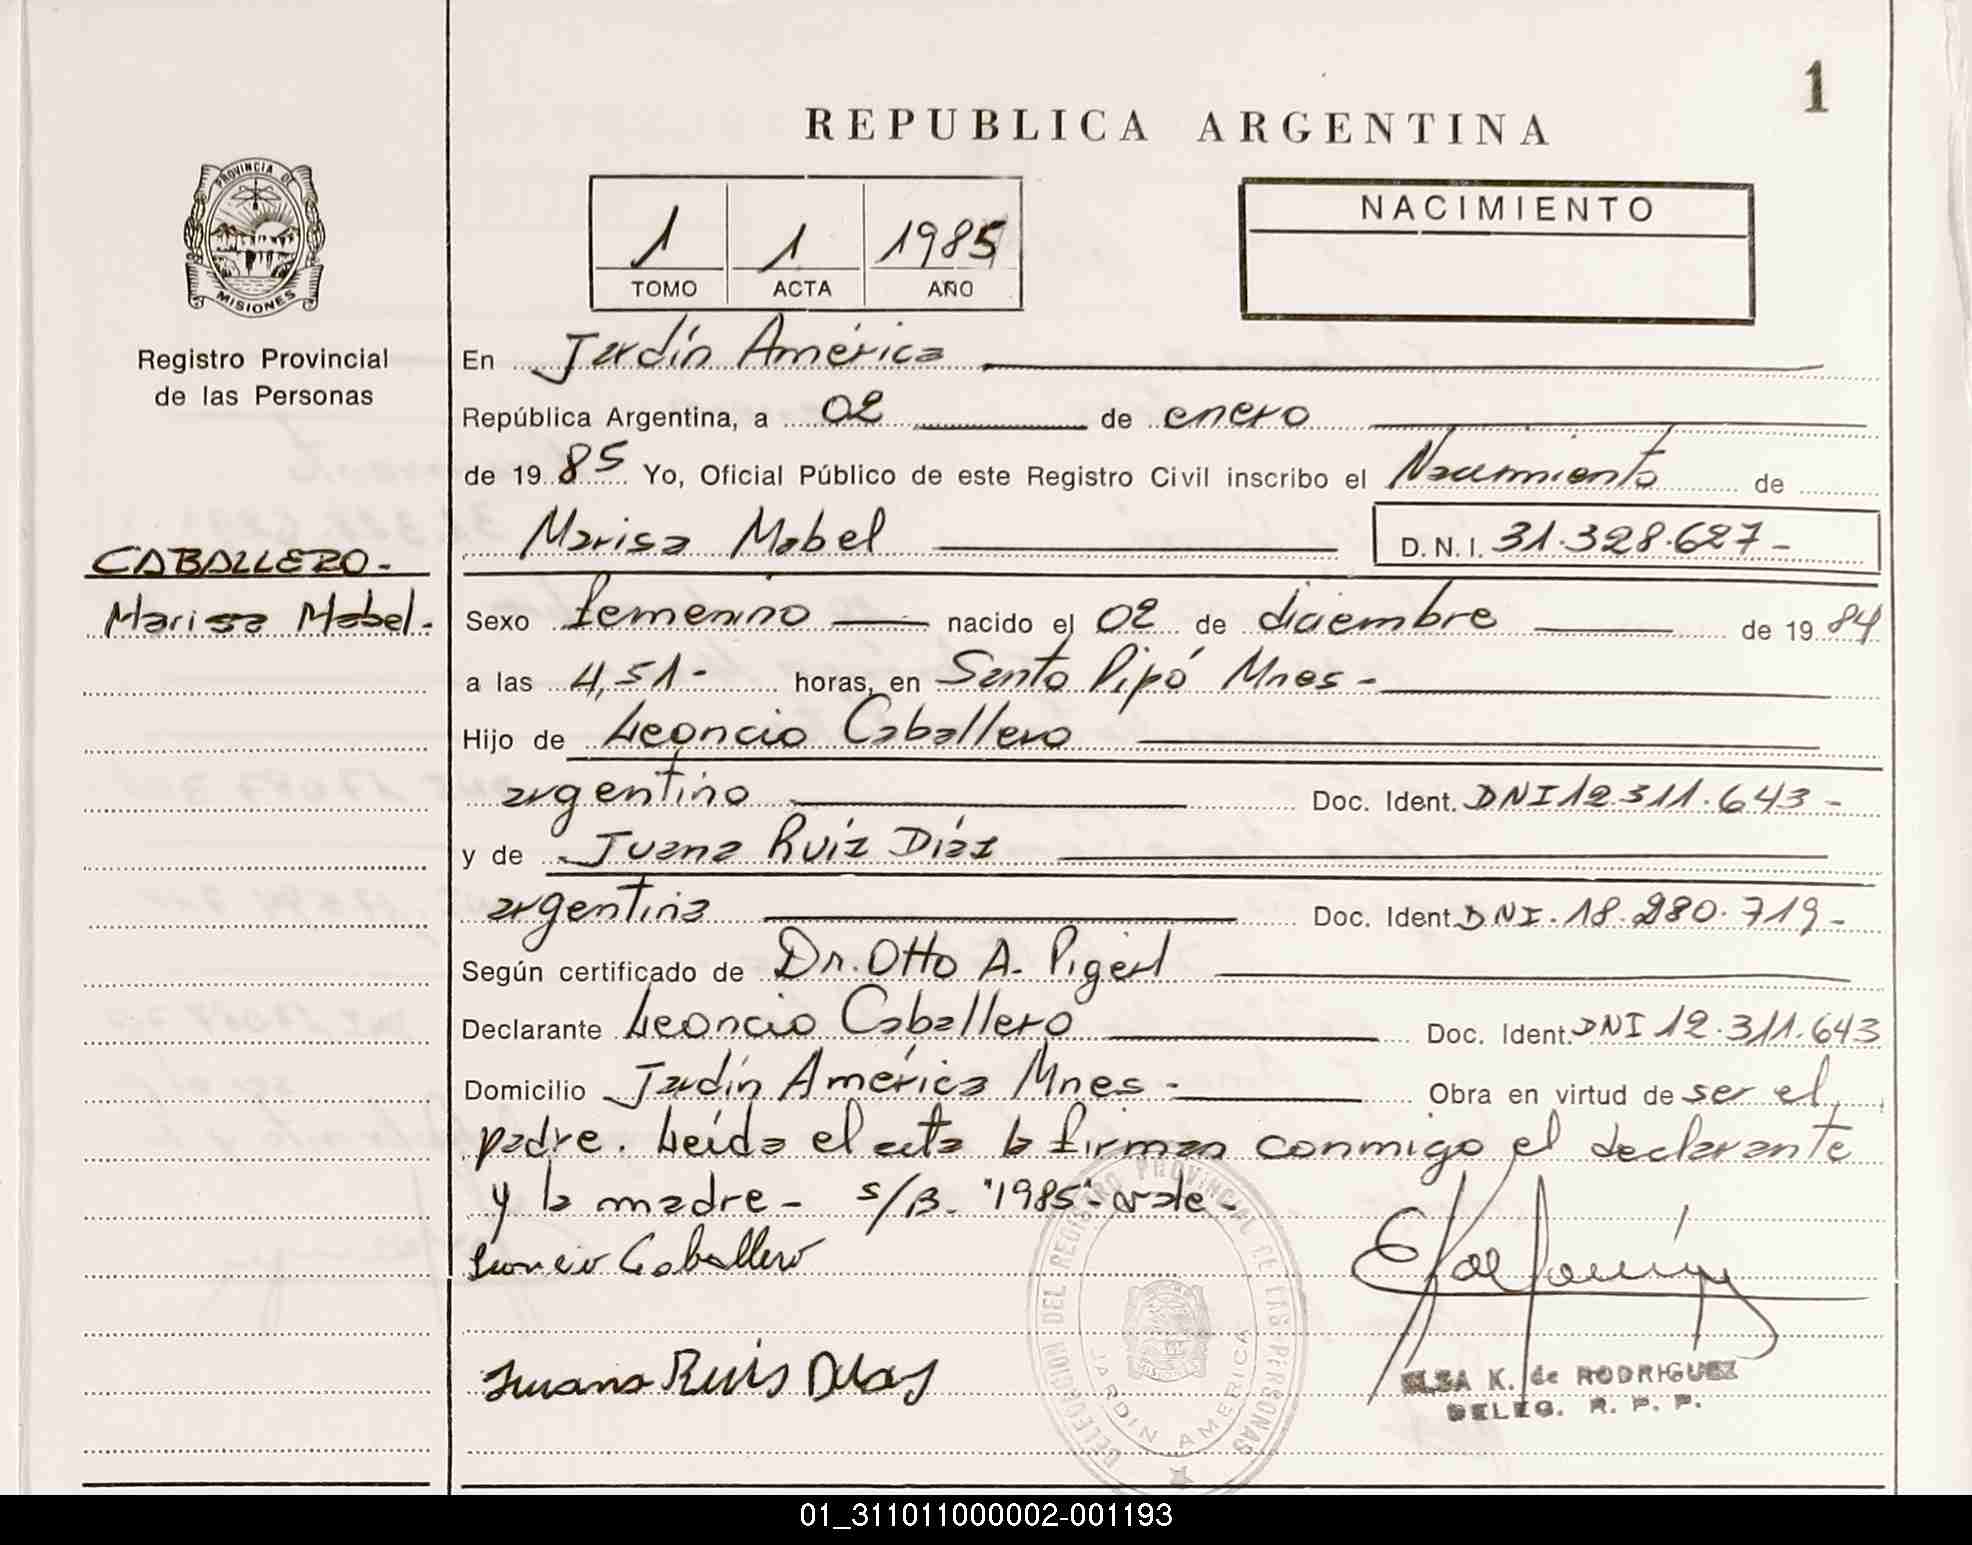 1
REPUBLICA ARGENTINA
PROVINCIA DE
MISIONES
Registro Provincial
de las Personas
1 1 1985
TOMO ACTA AÑO
NACIMIENTO
En Jardín América
República Argentina, a 02 de enero
de 19 85 Yo, Oficial Público de este Registro Civil inscribo el Nacimiento de
Marisa Mabel D. N. I. 31.328.627-
CABALLERO-
Marisa Mabel-
Sexo femenino nacido el 02 de diciembre de 19 84
a las 4,51- horas, en Santo Pipó Mnes-
Hijo de Leoncio Caballero
argentino Doc. Ident. DNI 12.311.643-
y de Juana Ruíz Díaz
argentina Doc. Ident. DNI. 18.280.719-
Según certificado de Dr. Otto A. Pigerl
Declarante Leoncio Caballero Doc. Ident. DNI 12.311.643
Domicilio Jardín América Mnes- Obra en virtud de ser el
padre. Leída el acta la firman conmigo el declarante
y la madre- s/B. "1985"-vale-
Leoncio Caballero
Juana Ruis Dias
DELEGACION DEL REGISTRO PROVINCIAL DE LAS PERSONAS
JARDIN AMERICA
ELSA K. de RODRIGUEZ
DELEG. R. P. P.
01_311011000002-001193